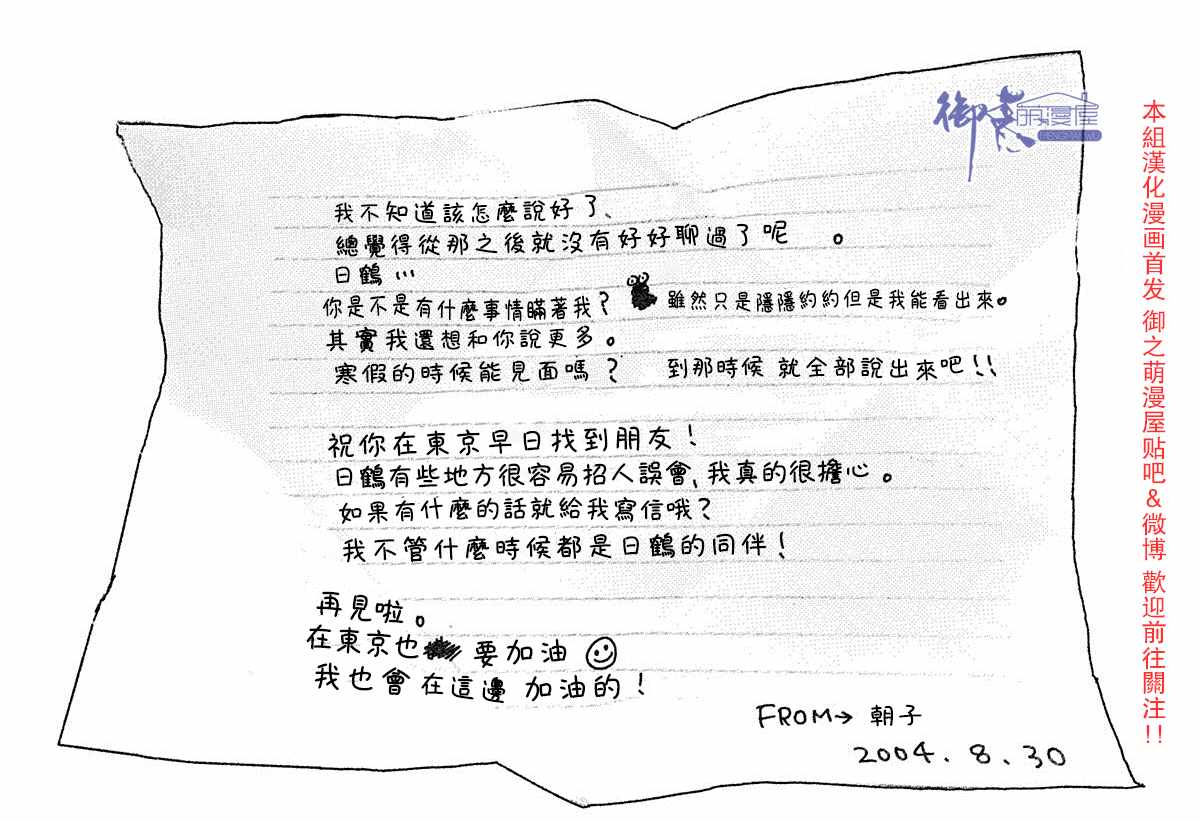 御意
萌漫屋
我不知道該怎麼說好了、
總覺得從那之後就沒有好好聊過了呢 。
日鶴…
你是不是有什麼事情瞞著我？ 雖然只是隱隱約約但是我能看出來。
其實我還想和你說更多。
寒假的時候能見面嗎？ 到那時候 就全部說出來吧!!
祝你在東京早日找到朋友！
日鶴有些地方很容易招人誤會、我真的很擔心。
如果有什麼的話就給我寫信哦？
我不管什麼時候都是日鶴的同伴！
再見啦。
在東京也 要加油
我也會在這邊 加油的！
FROM→ 朝子
2004.8.30
本組漢化漫画首发 御之萌漫屋贴吧&微博 歡迎前往關注!!